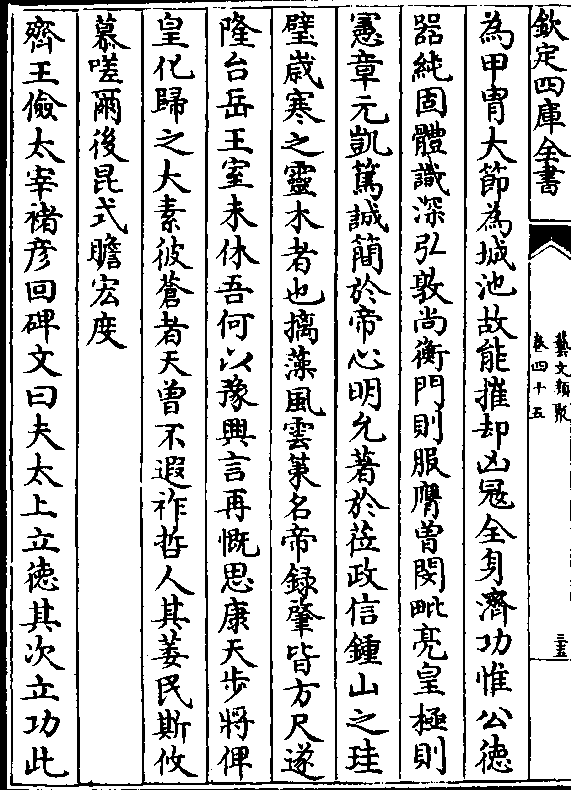 欽定四庫全書
藝文類聚
卷四十五
三五
為甲胄大節為城池故能摧却凶冦全身濟功惟公徳
器純固體識深弘敦尚衡門則服膺曾閔毗亮皇極則
憲章元凱篤誠簡於帝心明允著於莅政信鍾山之珪
璧嵗寒之靈木者也摛藻風雲䇿名帝録肇皆方尺遂
隆台岳王室未休吾何以豫興言再慨思康天步將俾
皇化歸之大素彼蒼者天曾不遐祚哲人其萎民斯攸
慕嗟爾後昆式瞻宏度
齊王儉太宰褚彦回碑文曰夫太上立徳其次立功此